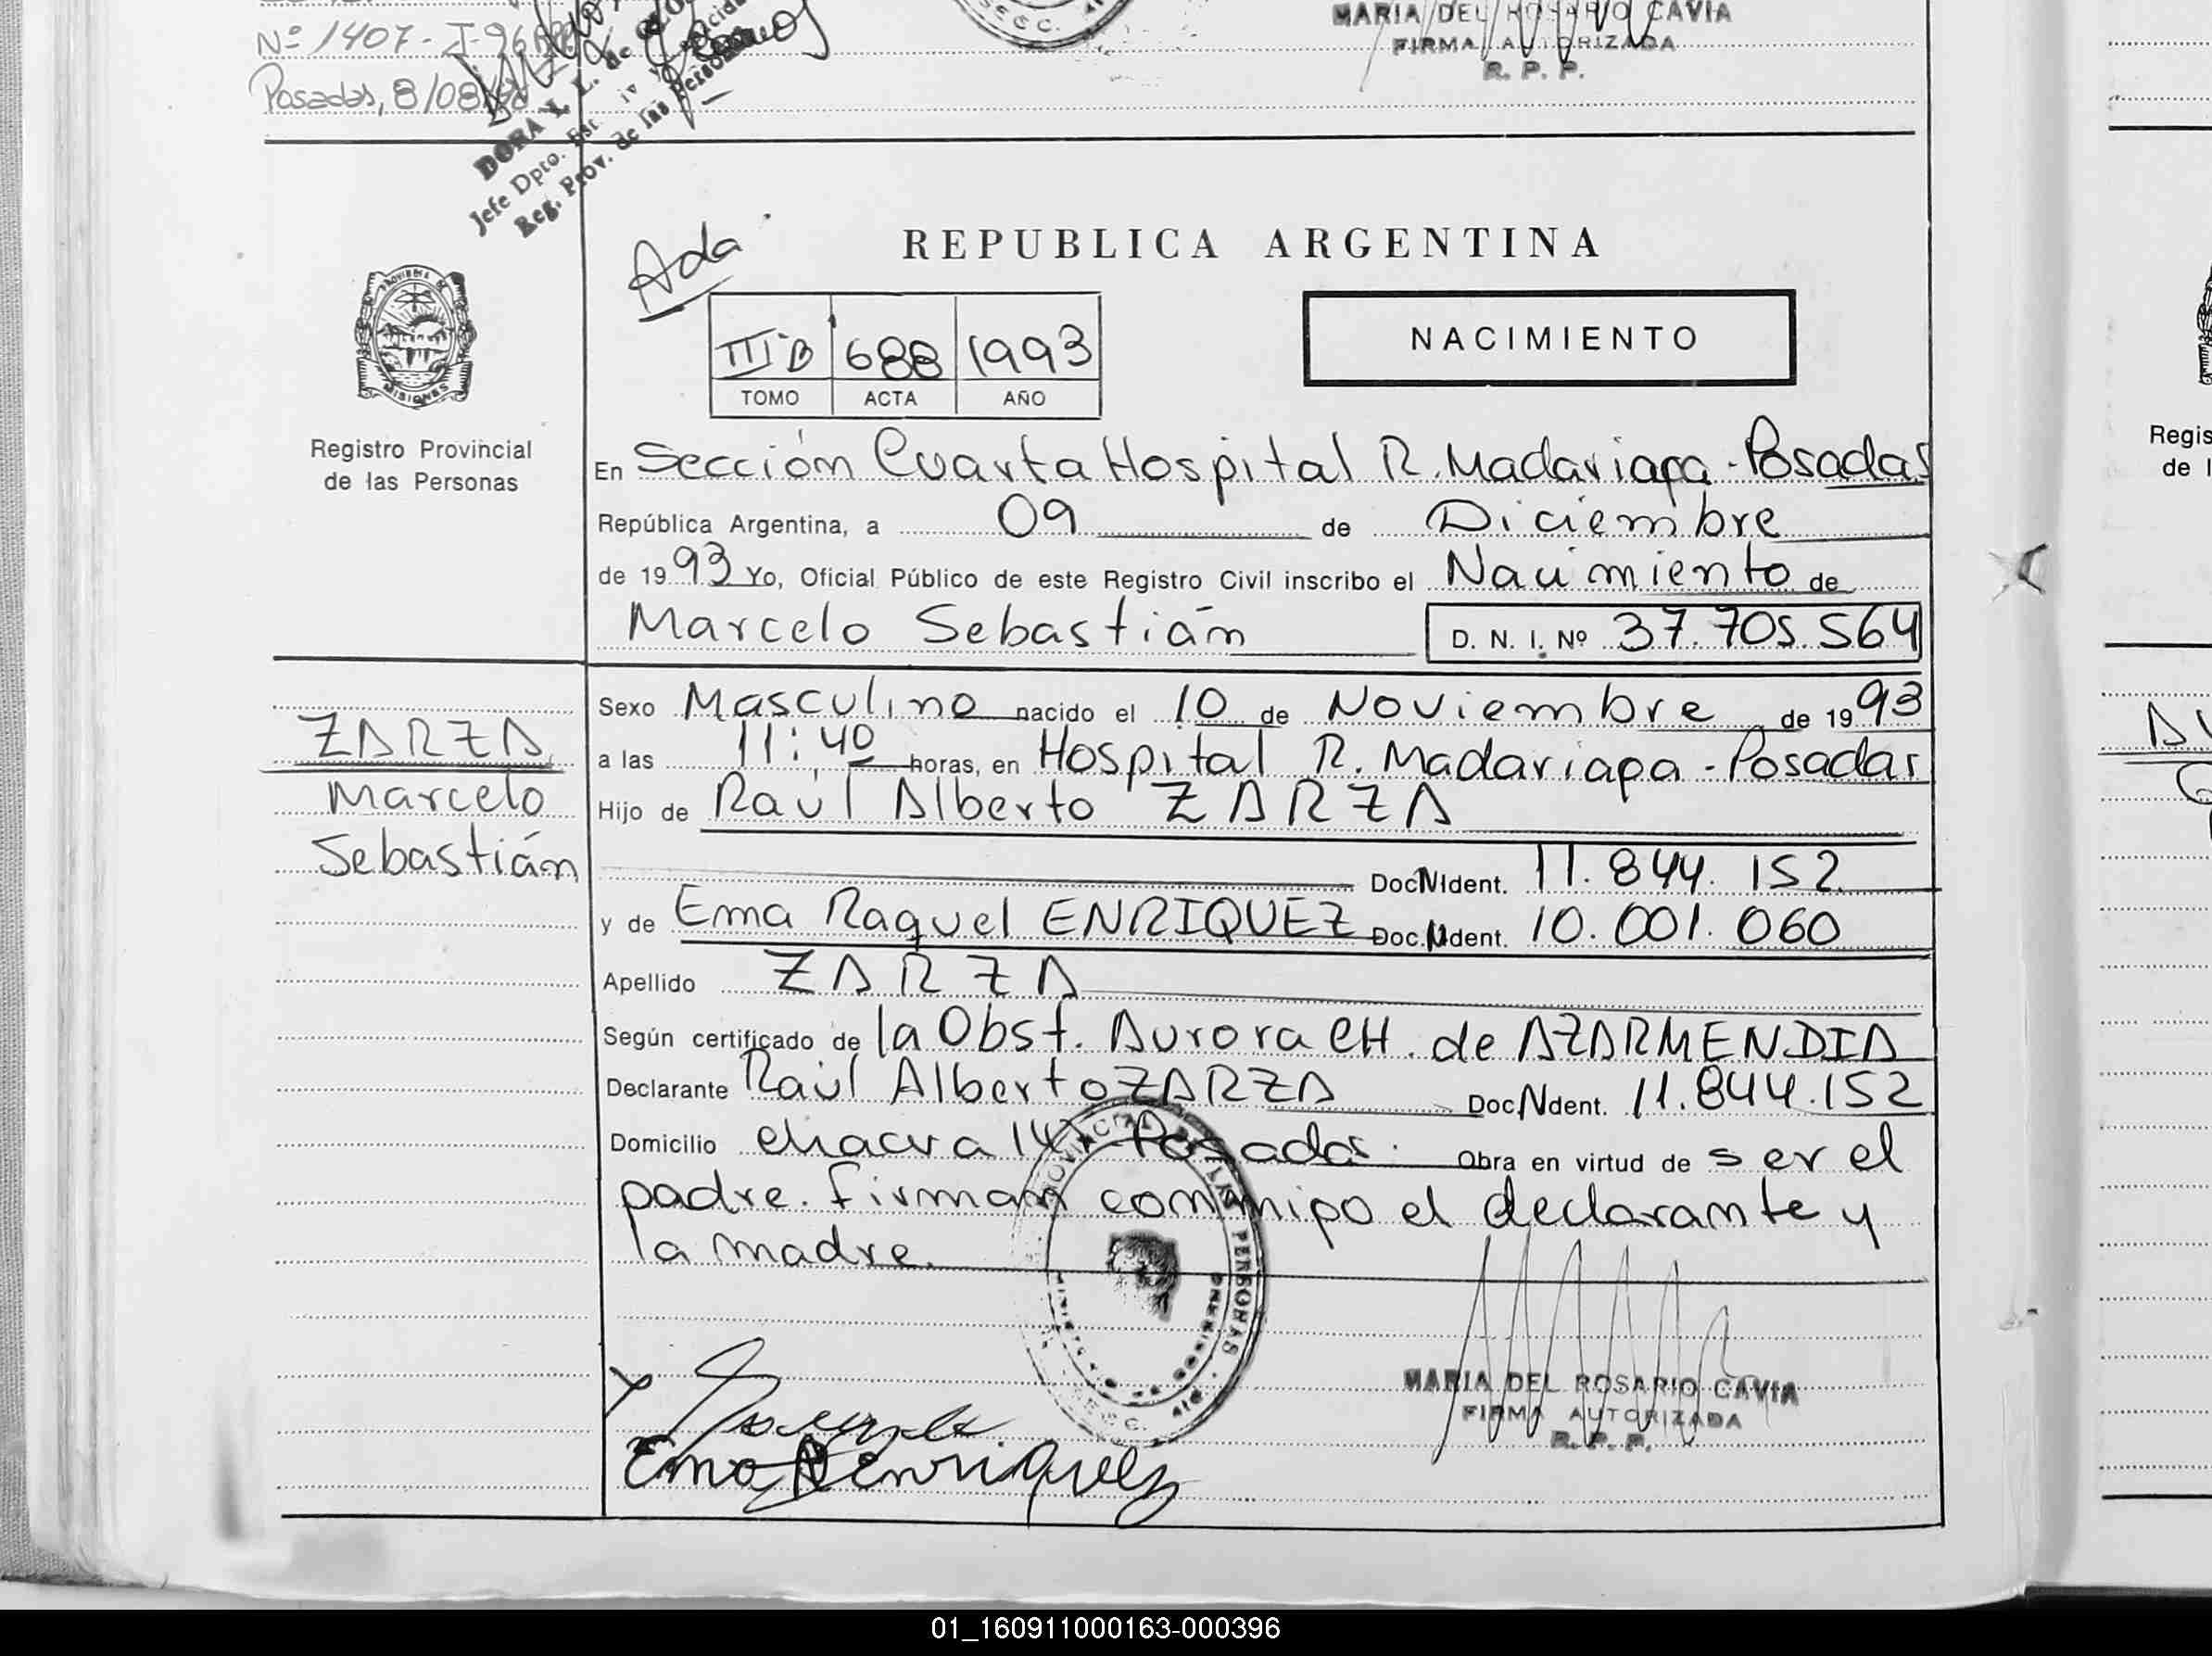 Nº 1407-
Posadas, 8/08
DORA
Jefe Dpto.
Reg. Prov. de las Personas
MARIA DEL ROSARIO CAVIA
FIRMA AUTORIZADA
R. P. P.
Ada
REPUBLICA ARGENTINA
III B 688 1993
TOMO ACTA AÑO
NACIMIENTO
PROVINCIA DE
MISIONES
Registro Provincial
de las Personas
En Sección Cuarta Hospital R. Madariaga - Posadas
República Argentina, a 09 de Diciembre
de 1993 Yo, Oficial Público de este Registro Civil inscribo el Nacimiento de
Marcelo Sebastián D. N. I. Nº 37.705.564
ZARZA
Marcelo
Sebastián
Sexo Masculino nacido el 10 de Noviembre de 1993
a las 11:40 horas, en Hospital R. Madariaga - Posadas
Hijo de Raúl Alberto ZARZA
Doc. N Ident. 11.844.152
y de Ema Raquel ENRIQUEZ Doc. N Ident. 10.001.060
Apellido ZARZA
Según certificado de la Obst. Aurora CH. de AZARMENDIA
Declarante Raúl Alberto ZARZA Doc. N Ident. 11.844.152
Domicilio chacra 147 Posadas. Obra en virtud de ser el
padre. Firman conmigo el declarante y
la madre.
PROVINCIAL DE LAS PERSONAS
MARIA DEL ROSARIO CAVIA
FIRMA AUTORIZADA
R. P. P.
Ema R Enriquez
Regis
de l
01_160911000163-000396